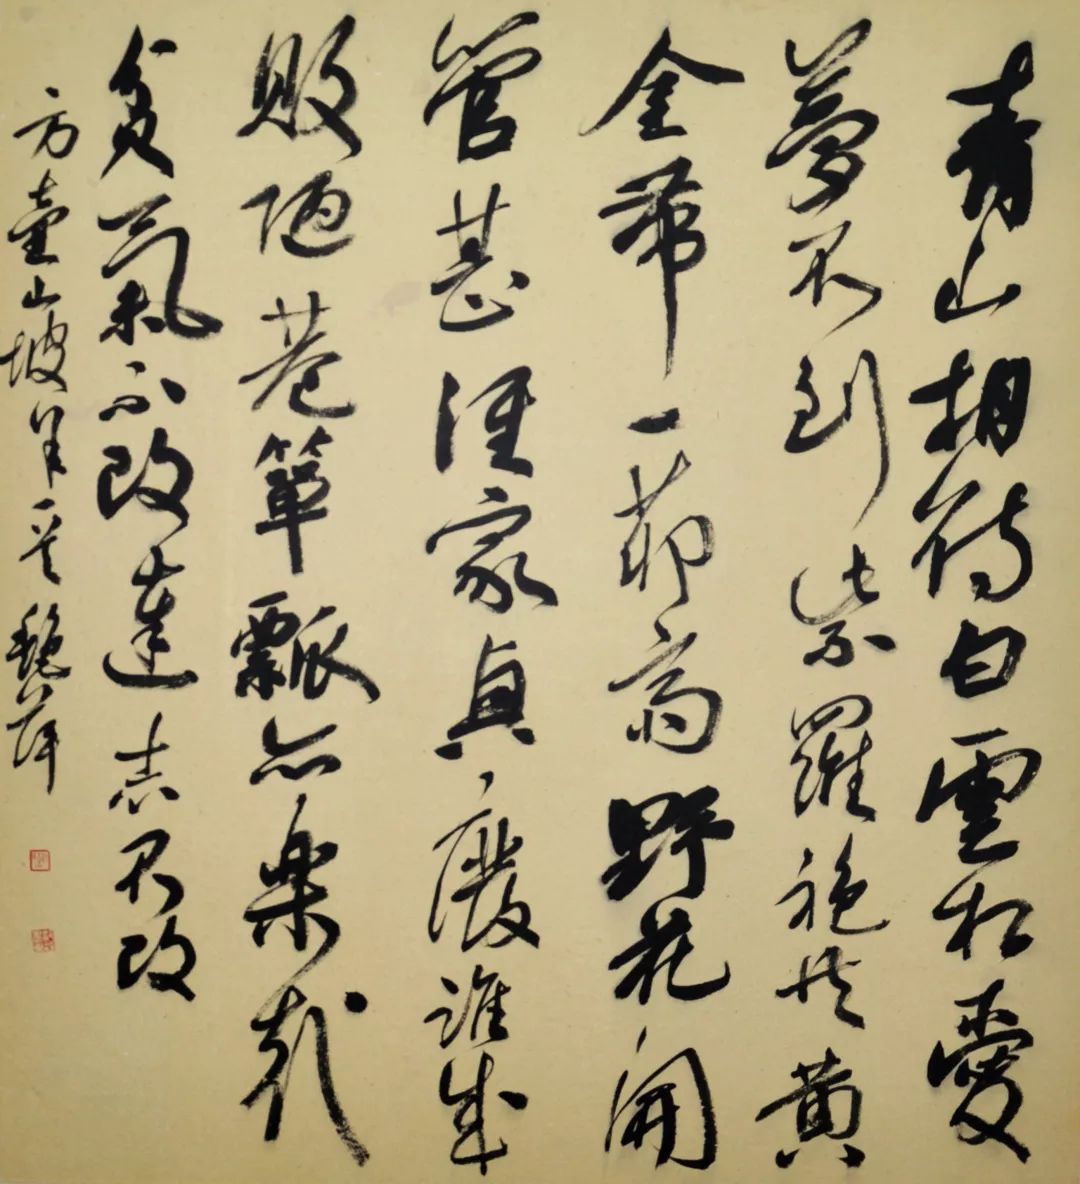 青山相待白雲相愛
夢不到紫羅袍共黃
金帶一茅齋野花開
管甚誰家興廢誰成
敗陋巷簞瓢亦樂哉
貧氣不改達志不改
方壺山坡羊一